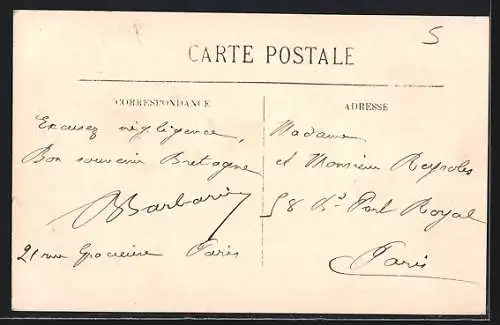 5
CARTE POSTALE
CORRESPONDANCE
Excusez négligence,
Bon souvenir Bretagne
21 rue Paris
ADRESSE
Madame
et Monsieur Reyroles
58 Bd Port Royal
Paris